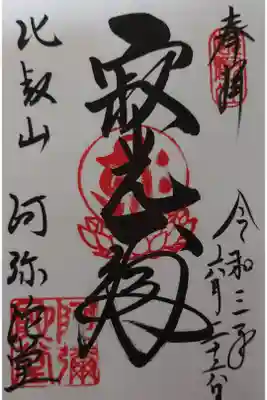 奉拝
令和三年
六月二十五日
寂光殿
比叡山 阿弥陀堂
阿彌
陀堂